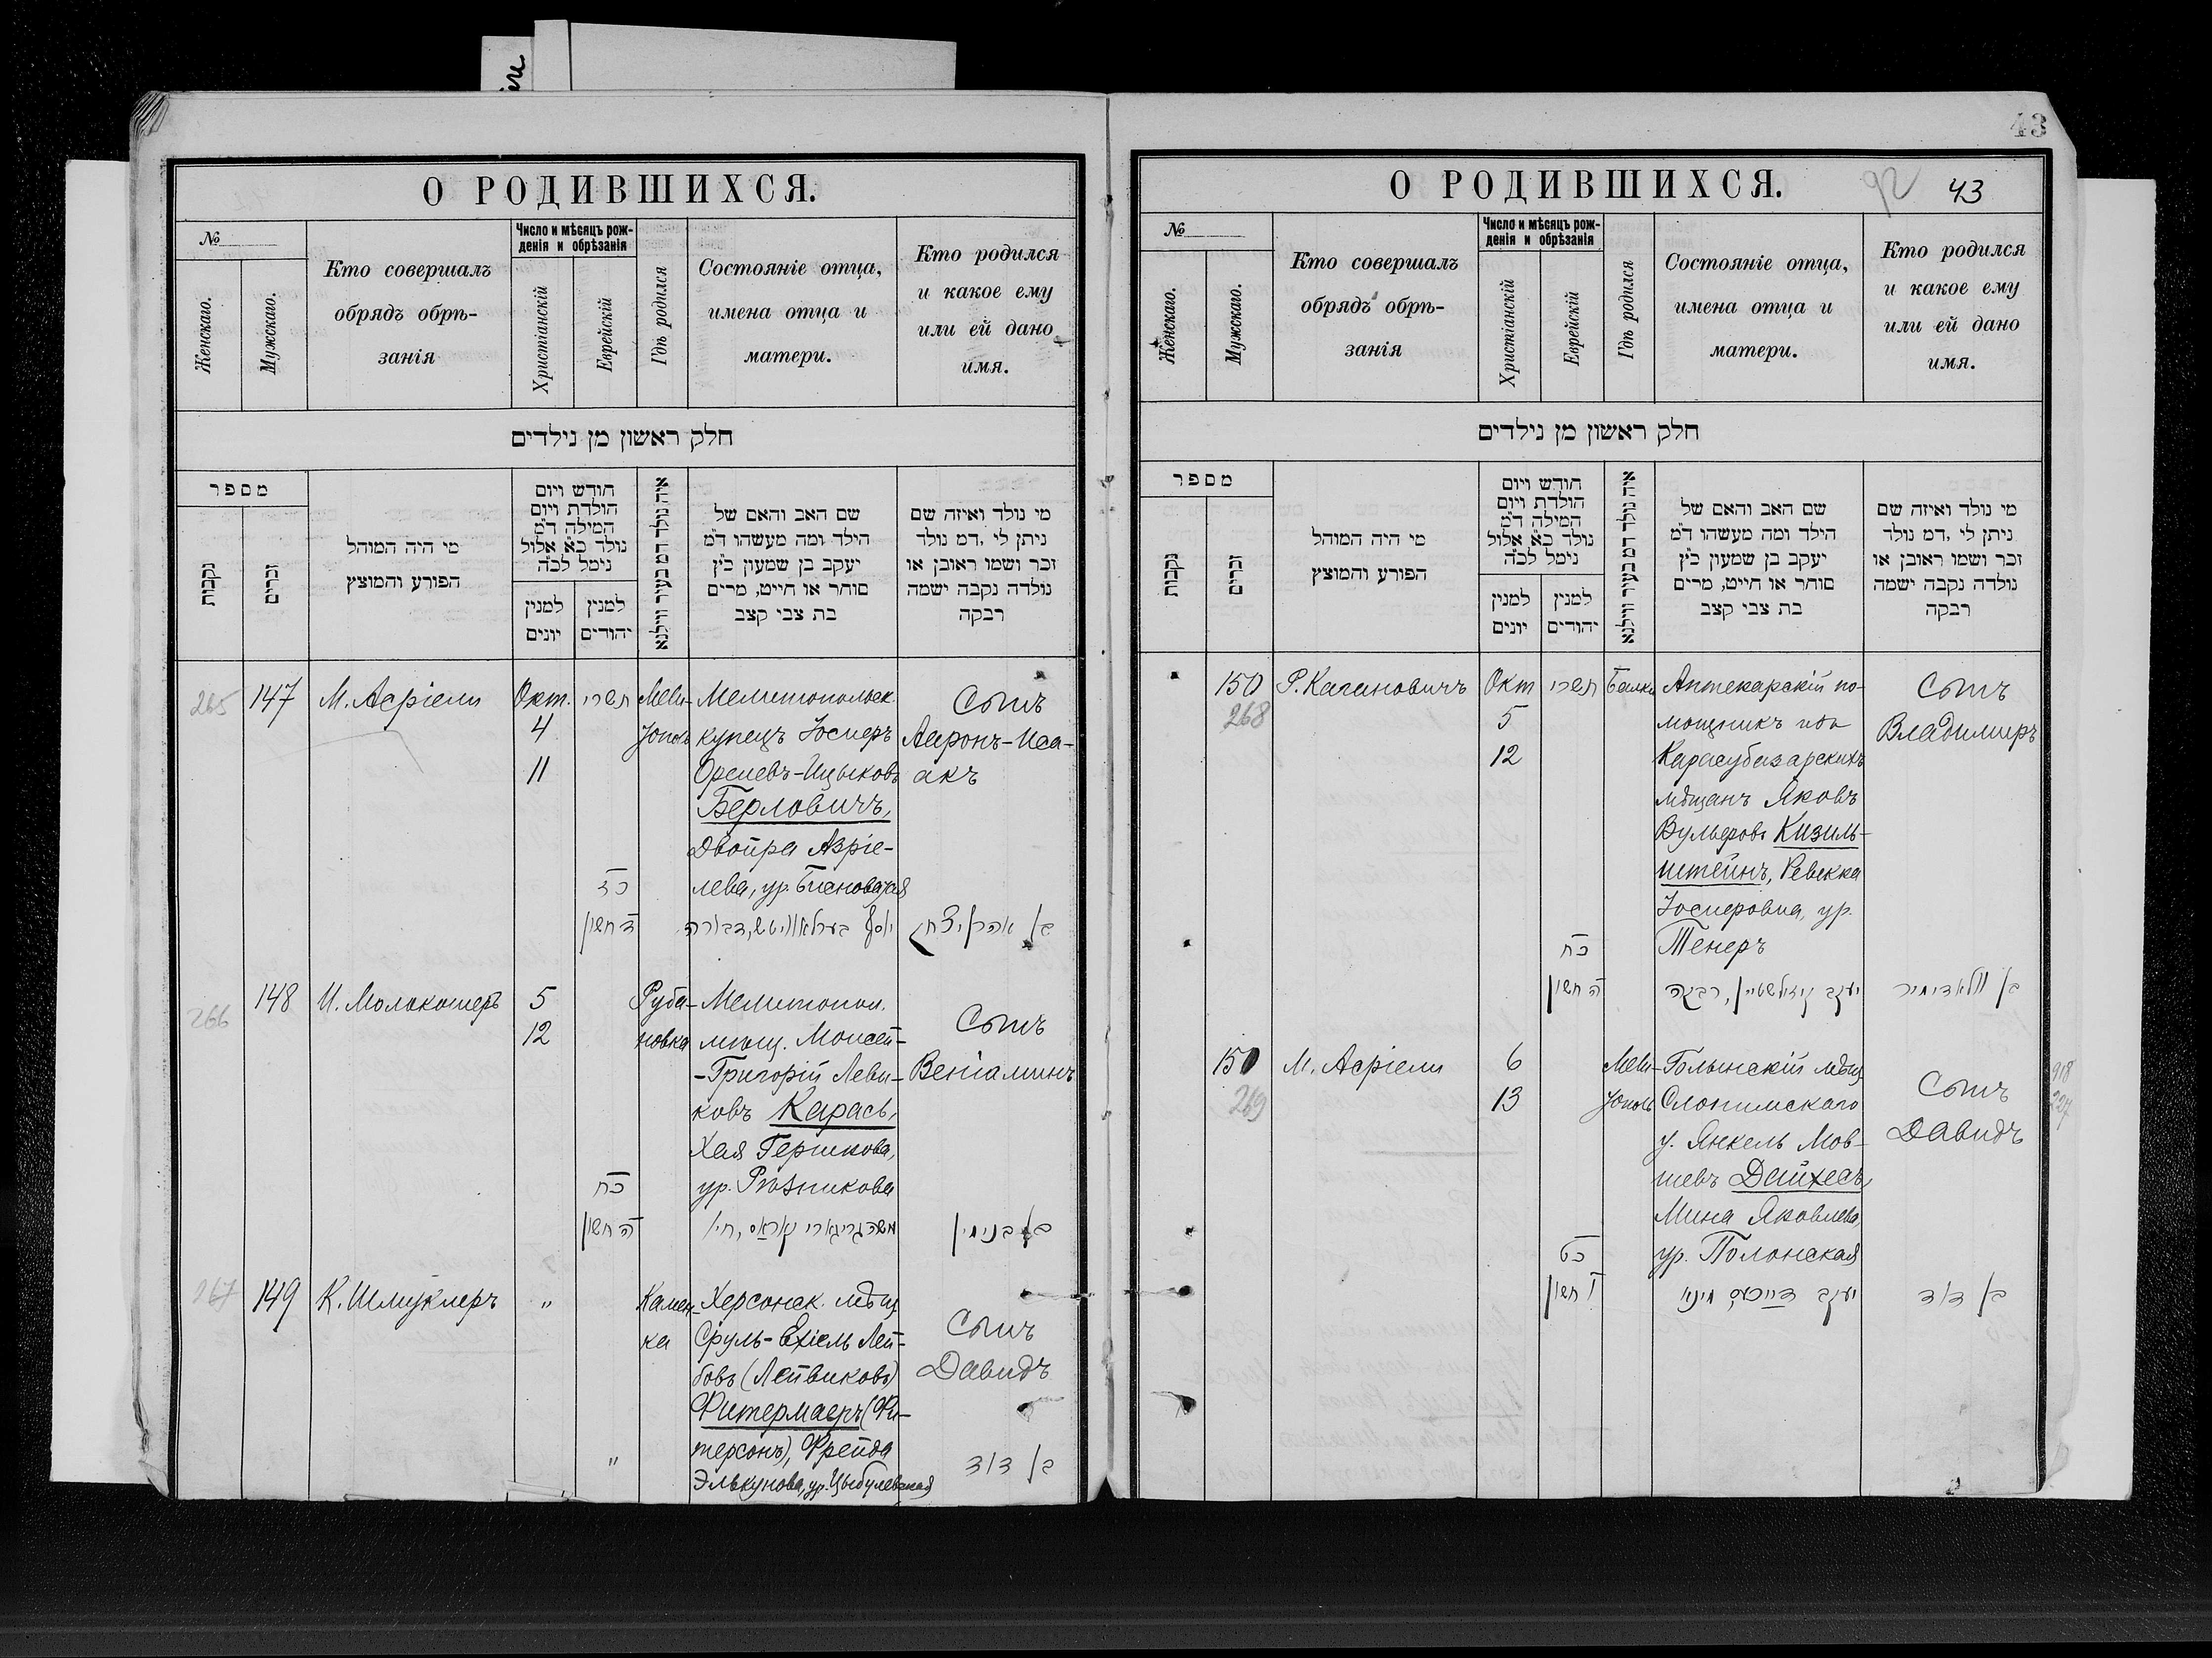 О РОДИВШИХСЯ.
№
Женскаго.
Мужскаго.
Кто совершалъ
обрядъ обрѣ-
занія
Число и мѣсяцъ рож-
денія и обрѣзанія
Христіанскій
Еврейскій
Гдѣ родился
Состояніе отца,
имена отца и
матери.
Кто родился
и какое ему
или ей дано
имя.
חלק ראשון מן נילדים
מספר
נקבות
זכרים
מי היה המוהל
הפורע והמוצץ
חודש ויום
הולדת ויום
המילה ד״מ
נולד כ״א אלול
נימל לכ״ה
למנין
יונים
למנין
יהודים
איה נולד דמ בעיר ווילנא
שם האב והאם של
הילד ומה מעשהו ד״מ
יעקב בן שמעון כ״ץ
סוחר או חייט, מרים
בת צבי קצב
מי נולד ואיזה שם
ניתן לי ,דמ נולד
זכר ושמו ראובן או
נולדה נקבה ישמה
רבקה
265
147
М. Асріели
Окт.
4
11
תשרי
כד
ד חשון
Мели-
тополь
Мелитопольск.
купецъ Іосифъ
Орелевъ-Ицыковъ
Берловичъ,
Двойра Азріе-
лева, ур.
יוסף בערלאוויטש, דבורה
Сынъ
Ааронъ-Иса-
акъ
בן אהרן יצחק
266
148
И. Молокошеръ
5
12
כח
ה חשון
Руба-
новка
Мелитопол.
мѣщ. Моисей-
-Григорій Леви-
ковъ Карась,
Хая Гершкова,
ур. Рѣзникова
משה גריגארי קאראס, חי׳
Сынъ
Веніаминъ
בן בנימין
267
149
К. Шмуклеръ
"
"
Камен-
ка
Херсонск. мѣщ
Сруль-Ехіель Лей-
бовъ (Лейвиковъ)
Фитермаеръ (Фи-
терсонъ), Фрейда
Элькунова, ур. Цыбулевская
Сынъ
Давидъ
בן דוד
43
О РОДИВШИХСЯ.
92
43
№
Женскаго.
Мужскаго.
Кто совершалъ
обрядъ обрѣ-
занія
Число и мѣсяцъ рож-
денія и обрѣзанія
Христіанскій
Еврейскій
Гдѣ родился
Состояніе отца,
имена отца и
матери.
Кто родился
и какое ему
или ей дано
имя.
חלק ראשון מן נילדים
מספר
נקבות
זכרים
מי היה המוהל
הפורע והמוצץ
חודש ויום
הולדת ויום
המילה ד״מ
נולד כ״א אלול
נימל לכ״ה
למנין
יונים
למנין
יהודים
איה נולד דמ בעיר ווילנא
שם האב והאם של
הילד ומה מעשהו ד״מ
יעקב בן שמעון כ״ץ
סוחר או חייט, מרים
בת צבי קצב
מי נולד ואיזה שם
ניתן לי ,דמ נולד
זכר ושמו ראובן או
נולדה נקבה ישמה
רבקה
150
268
Р. Кагановичъ
Окт
5
12
תשרי
כח
ה חשון
Балки
Аптекарскій по-
мощникъ изъ
Карасубазарскихъ
мѣщанъ Яковъ
Вульфовъ Кизиль-
штейнъ, Ревекка
Іосифовна, ур.
Тенеръ
יעקב קיזילשטיין, רבקה
Сынъ
Владимиръ
בן וולאדימיר
150
269
М. Асріели
6
13
כט
ו חשון
Мели-
тополь
Голынскій мѣщ
Слонимскаго
у. Янкель Мов-
шевъ Дайхесъ,
Мина Яковлева,
ур. Полонская
יעקב דייכעס, מינא
Сынъ
Давидъ
בן דוד